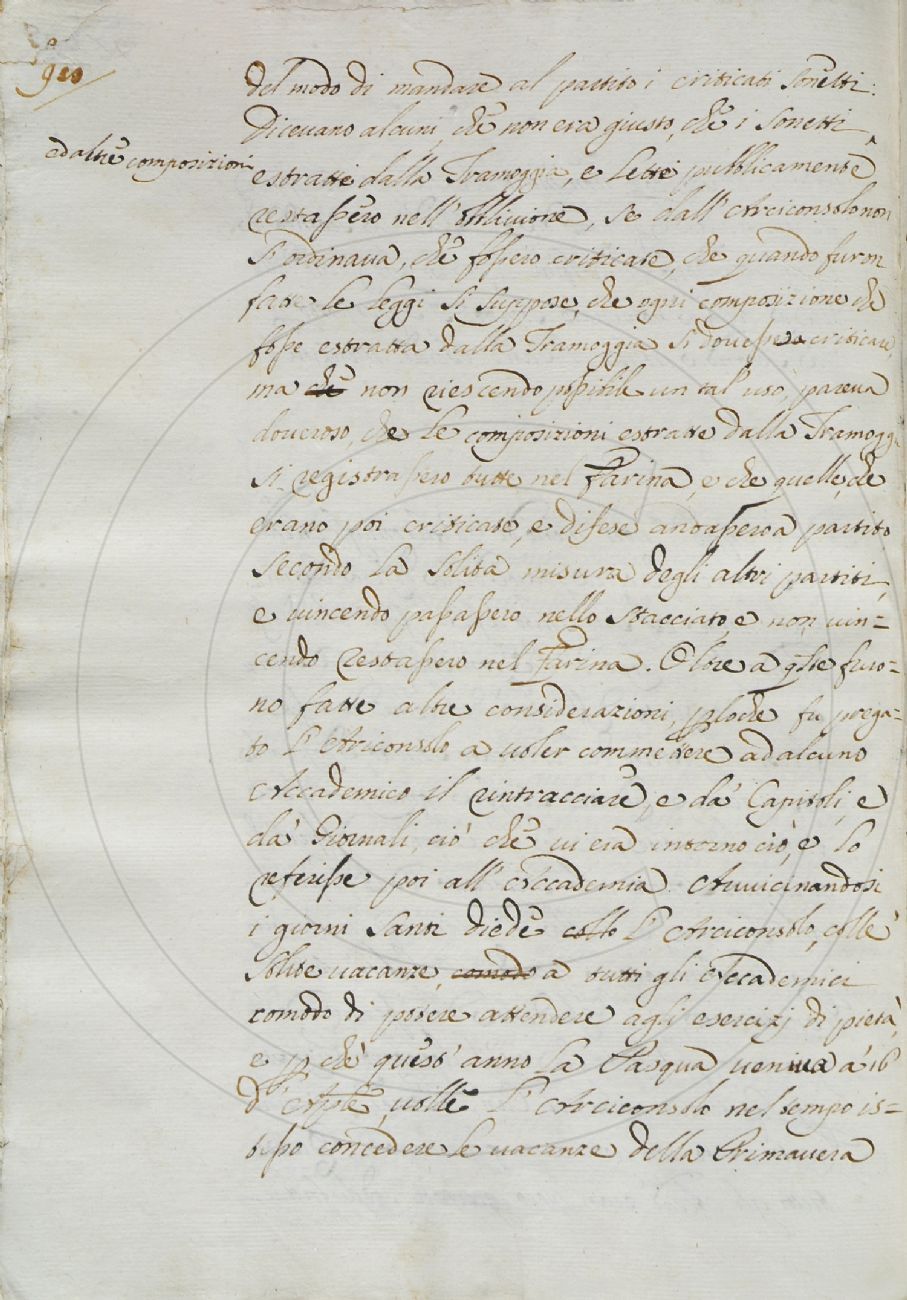 920
ad altre composizioni
del modo di mandare al partito i criticati Sonetti:
Dicevano alcuni, che non era giusto, che i Sonetti ^
estratti dalla Tramoggia, e Letti pubblicamente
restassero nell'obblivione, se dall'Arciconsolo non
s'ordinava, che fossero criticate, che quando furon
fatte le Leggi si suppose, che ogni composizione che
fosse estratta dalla Tramoggia si dovesse criticare,
ma che non riescendo possibile un tal'uso, pareva
doveroso, che le composizioni estratte dalla Tramoggia
si registrassero tutte nel Farina, e che quelle, che
erano poi criticate, e difese andassero a partito
secondo la solita misura degli altri partiti,
e vincendo passassero nello Stacciato, e non vin=
cendo restassero nel Farina. Oltre a q.ste furo=
no fatte altre considerazioni, p loche fu prega=
to l'Arciconsolo a voler commettere ad alcuno
Accademico il rintracciare, e da' Capitoli, e
da' Giornali, ciò che vi era intorno ciò, e lo
referisse poi all'Accademia. Avvicinandosi
i giorni Santi diede collo l'Arciconsolo, colle
solite vacanze, comodo a tutti gli Accademici
comodo di potere attendere agli esercizj di pietà,
e p che quest'anno la Pasqua veniva a' 16
d'Aple, volle l'Arciconsolo nel tempo is=
tesso concedere le vacanze della Primavera